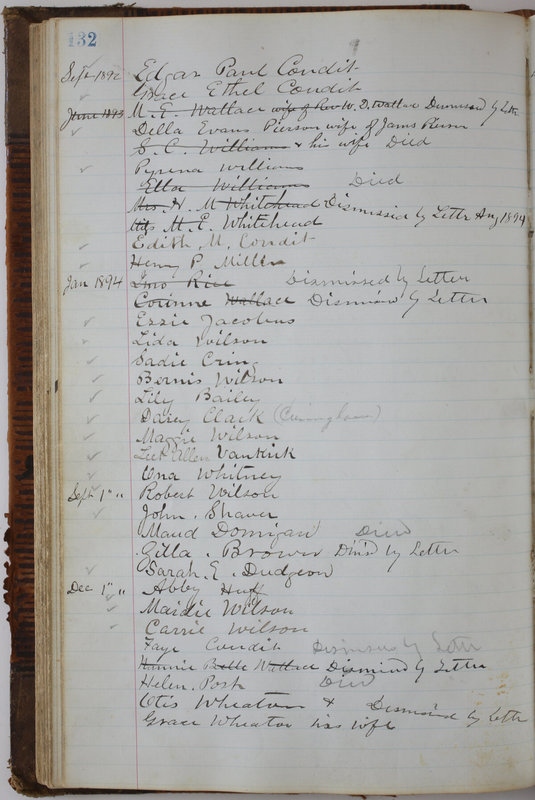 132
Sept 1892 Edgar Paul Condit
Grace Ethel Condit
June 1893 M. E. Wallace wife of Rev W. D. Wallace Dismissed by Letter
Della Evans Pierson wife of James Pierson
S. C. Williams & his wife Died
Pyrena Williams
Ella Williams Died
Mrs. H. M Whitehead Dismissed by Letter Aug 1894
M. E. Whitehead
Edith M. Condit
Henry P. Miller
Jan 1894 Rice Dismissed by Letter
Corinne Wallace Dismissed by Letter
Essie Jacobus
Lida Wilson
Sadie Crim
Bernis Wilson
Lily Bailey
Daisy Clark
Maggie Wilson
Lee Allen VanKirk
Ona Whitney
Sept 1" " Robert Wilson
John. Shaver
Maud Domigan Died
Zilla. Brown Dism'd by Letter
Sarah. E. Dudgeon
Dec 1" " Abby Huff
Maidie Wilson
Carrie Wilson
Faye Condit Dismissed by Letter
Nannie Belle Wallace Dismissed by Letter
Helen. Post Died
Otis Wheaton & Dismissed by Letter
Grace Wheaton his wife